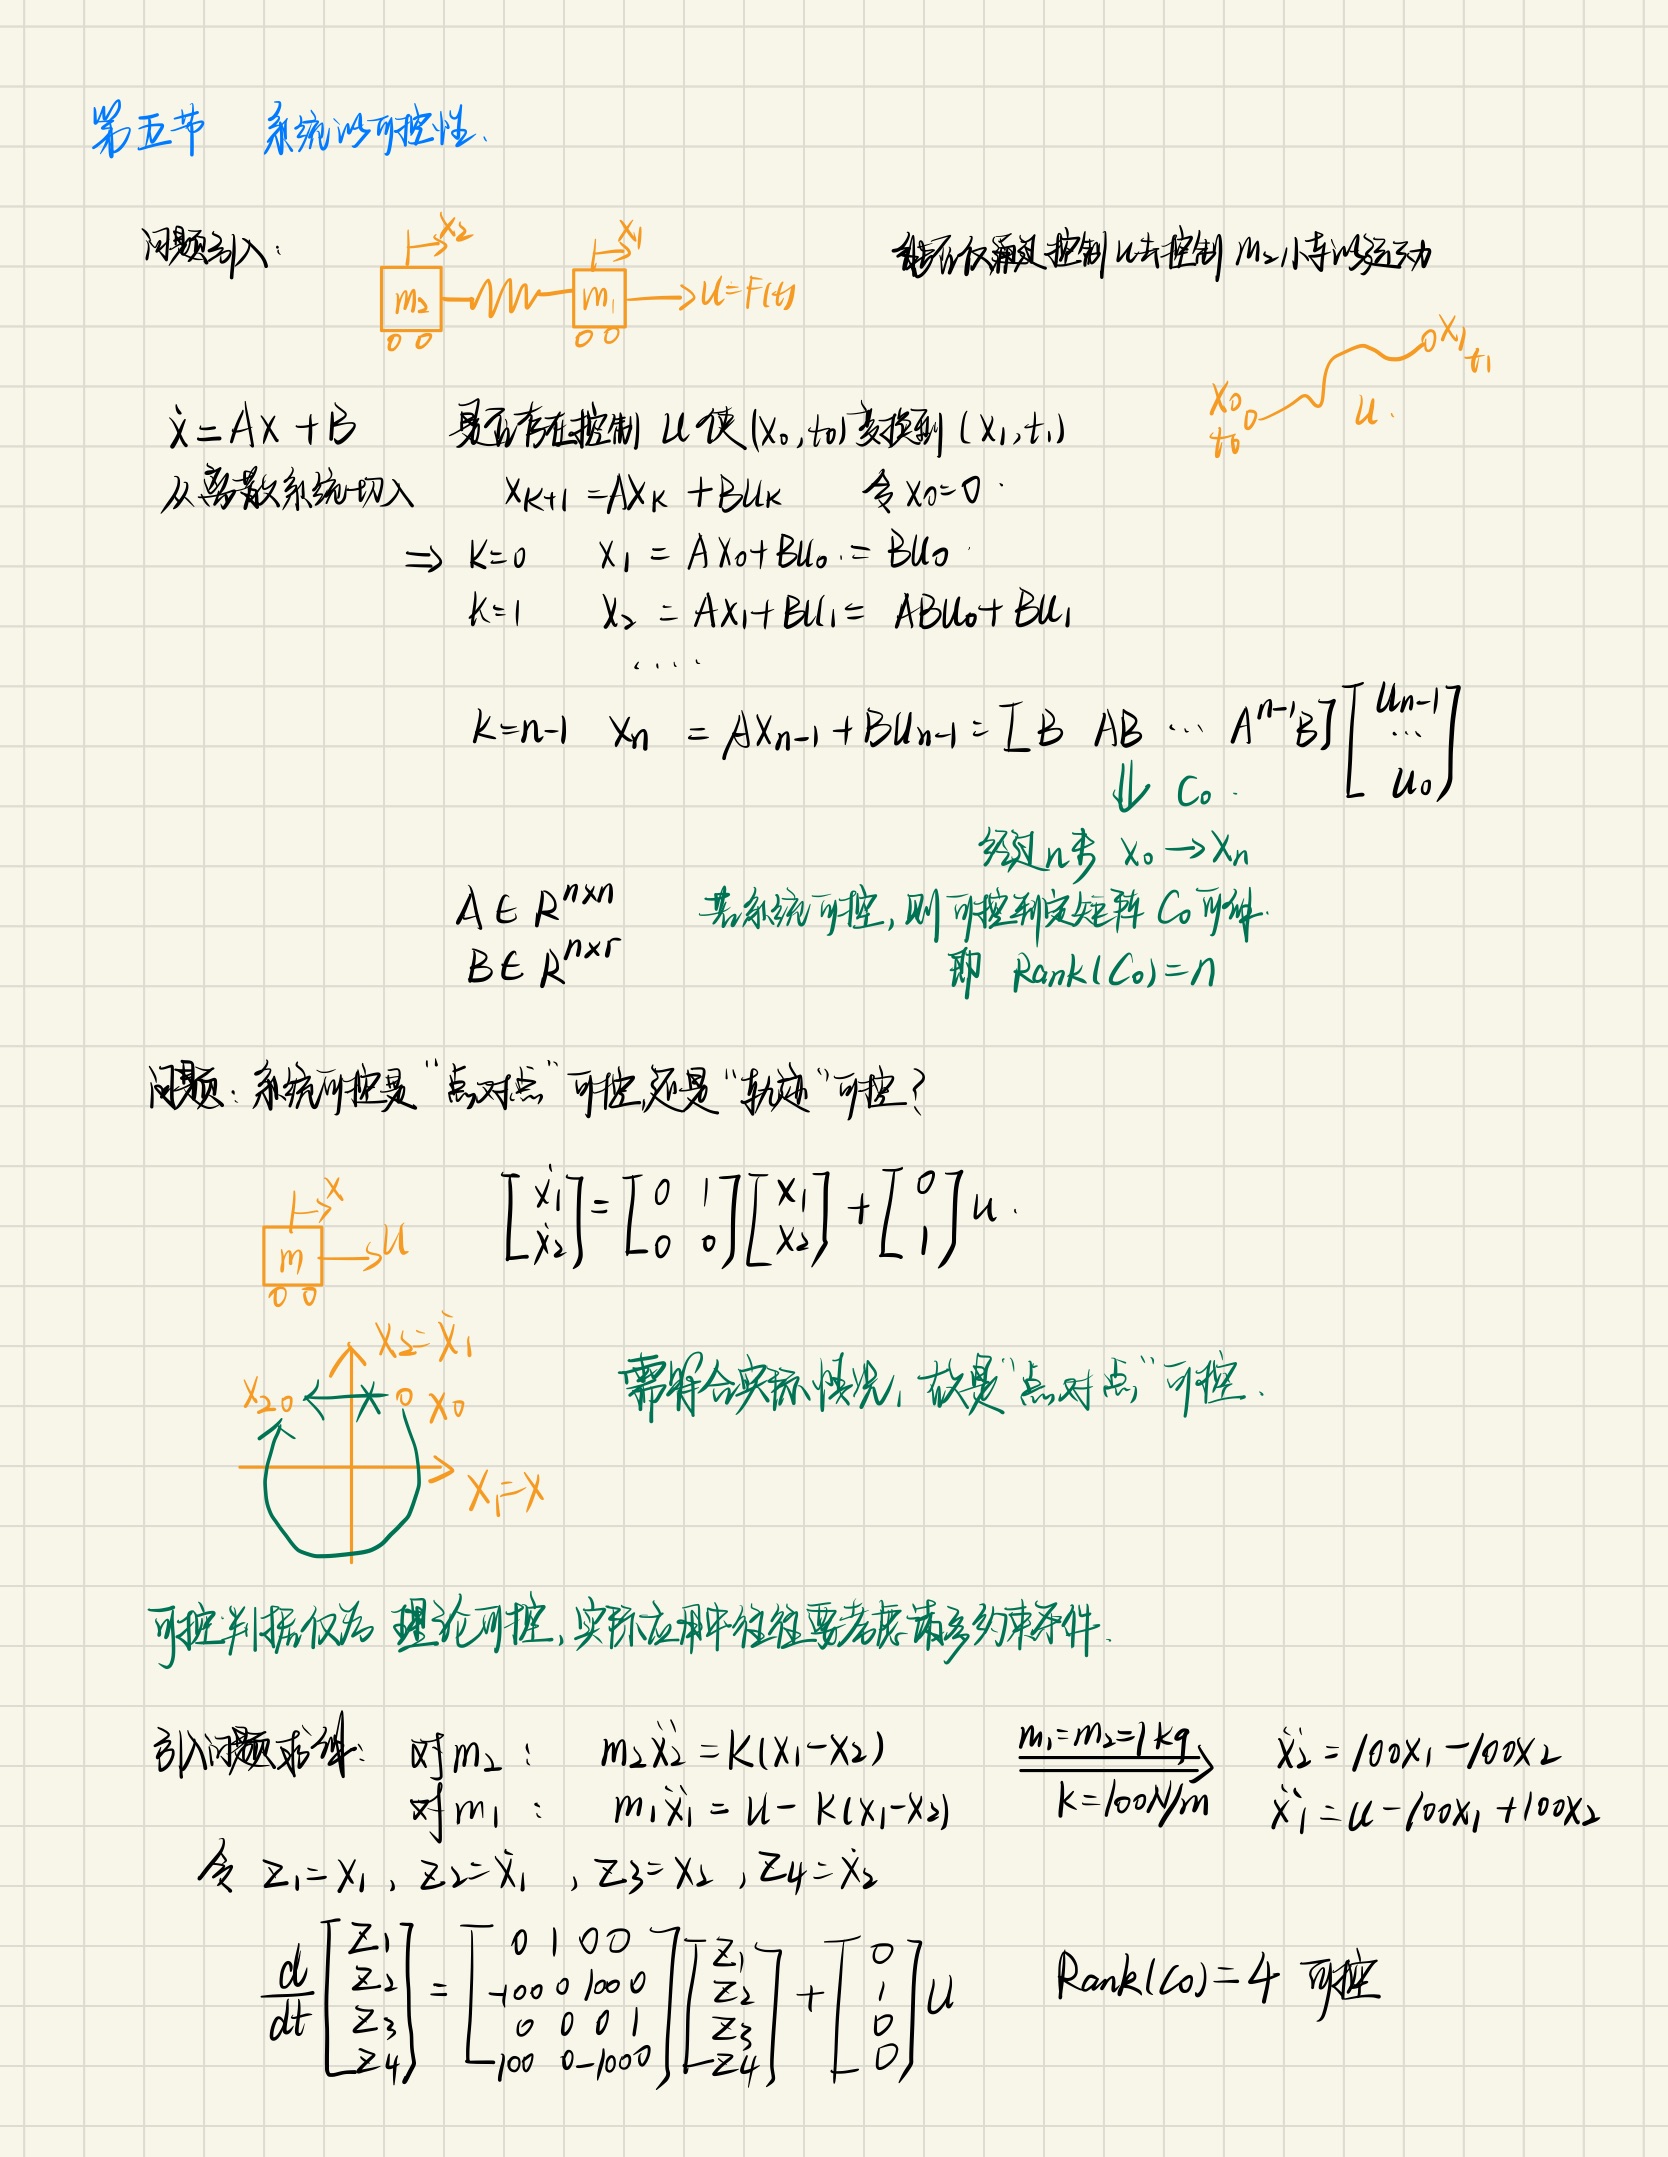 第五节 系统的可控性.
问题引入:
x2 x1
m2 m1 u=F(t)
能否仅通过控制u去控制m2小车的运动
x0 t0 u. x1 t1
ẋ=Ax+B 是否存在控制 u 使(x0,t0)变换到(x1,t1)
从离散系统切入 xK+1=AxK+BuK 令x0=0.
⇒ K=0 x1 = Ax0+Bu0 = Bu0
K=1 x2 = Ax1+Bu1= ABu0+Bu1
....
K=n-1 xn = Axn-1+Bun-1=[B AB ... A^{n-1}B][un-1 ... u0]
⇓ Co.
经过n步 x0→xn
A∈R^{n×n} 若系统可控,则可控判定矩阵Co可解.
B∈R^{n×r} 即 Rank(Co)=n
问题: 系统可控是“点对点”可控,还是“轨迹”可控?
x
m u
[ẋ1 ẋ2]=[0 1; 0 0][x1 x2]+[0 1]u.
x2=ẋ1
x20 x0
x1=x
需符合实际情况,故是“点对点”可控.
可控判据仅为理论可控,实际应用中往往要考虑诸多约束条件.
引入问题求解: 对m2: m2ẍ2=K(x1-x2) m1=m2=1kg ẍ2=100x1-100x2
对m1: m1ẍ1=u-K(x1-x2) k=100N/m ẍ1=u-100x1+100x2
令 z1=x1, z2=ẋ1, z3=x2, z4=ẋ2
d/dt [z1 z2 z3 z4] = [0 1 0 0; -100 0 100 0; 0 0 0 1; 100 0 -100 0][z1 z2 z3 z4]+[0 1 0 0]u Rank(Co)=4 可控